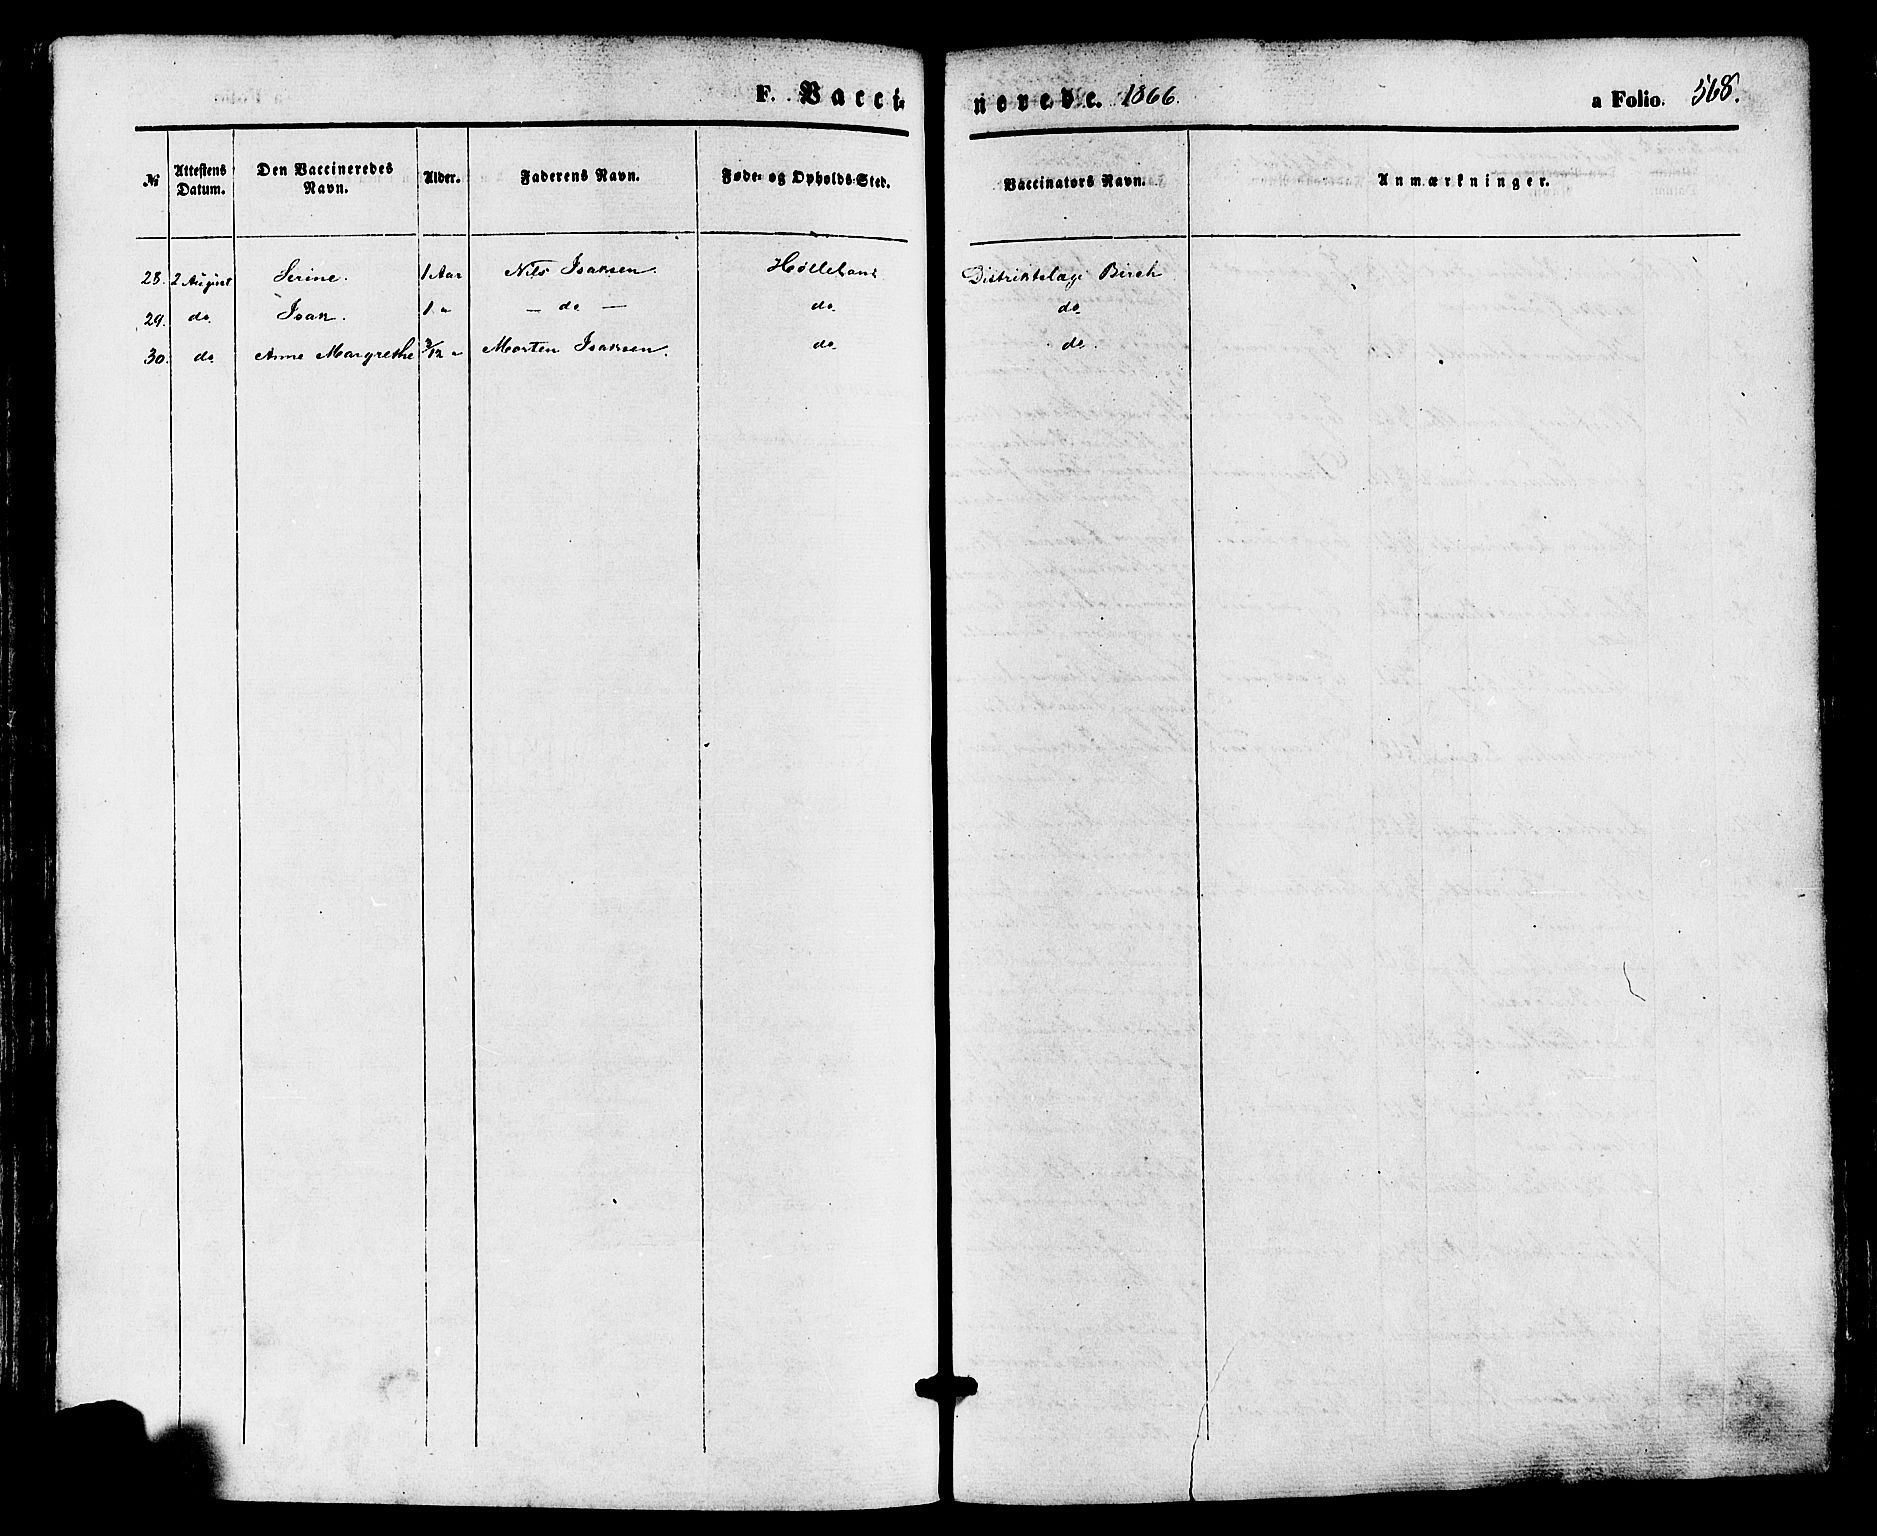 F. Vacci- nerede. 1866. a Folio. 568.
№ Attestens Datum. Den Vaccineredes Navn. Alder. Faderens Navn. Føde- og Opholds-Sted. Vaccinators Navn. Anmærkninger.
28. 2 August Serine. 1 Aar Nils Isaksen. Distriktslæge Birch
29. do. Isak. 1 " — do — do. do.
30. do Anne Margrethe 3/12 " Morten Isaksen. do. do.